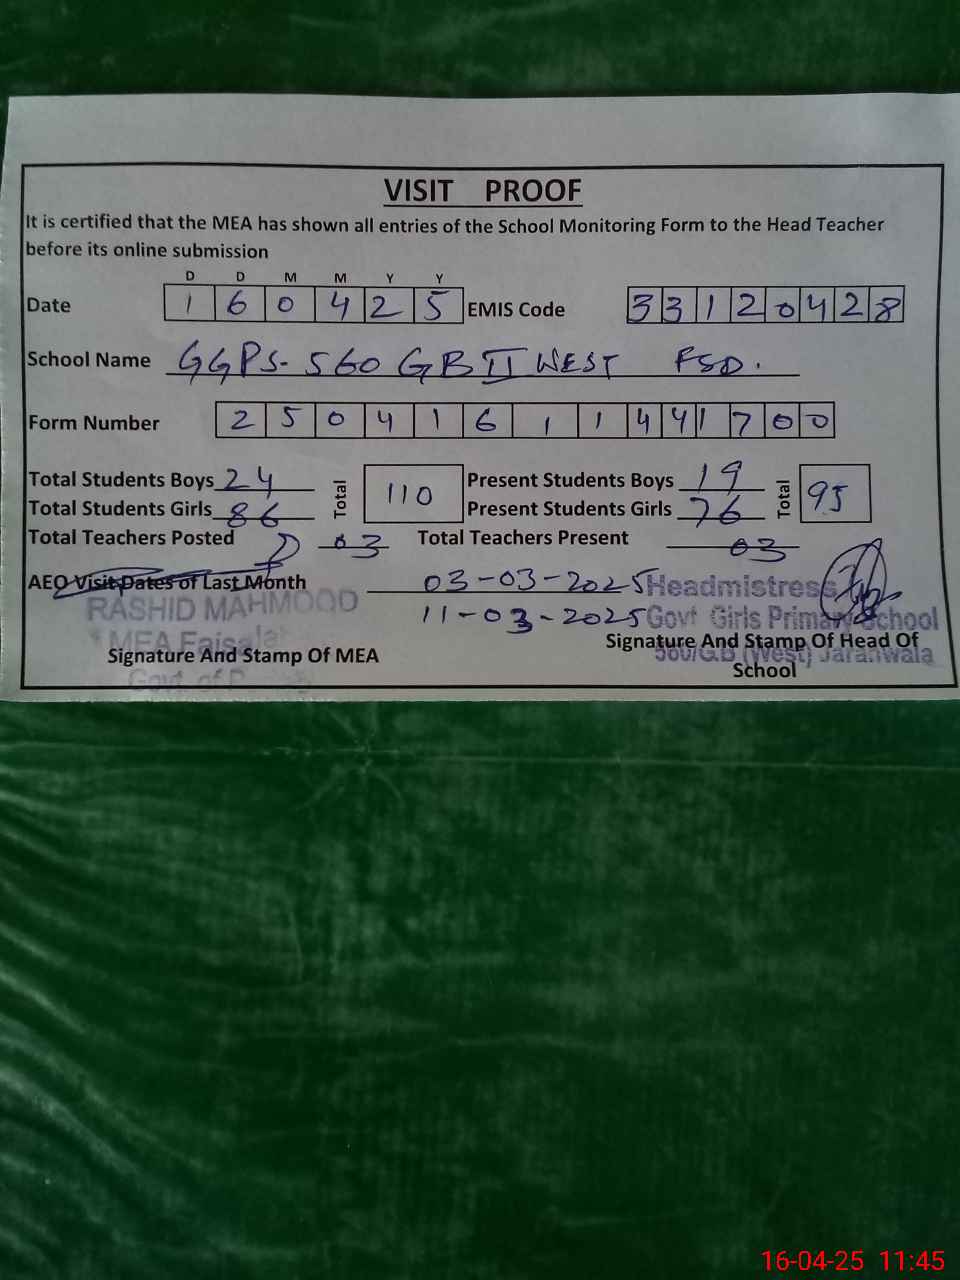 VISIT PROOF
It is certified that the MEA has shown all entries of the School Monitoring Form to the Head Teacher
before its online submission
D D M M Y Y
Date 1 6 0 4 2 5 EMIS Code 3 3 1 2 0 4 2 8
School Name GGPS- 560 GB II WEST FSD.
Form Number 2 5 0 4 1 6 1 1 4 4 1 7 0 0
Total Students Boys 24 Total 110 Present Students Boys 19 Total 95
Total Students Girls 86 Present Students Girls 76
Total Teachers Posted 03 Total Teachers Present 03
AEO Visit Dates of Last Month 03-03-2025 Headmistress
RASHID MAHMOOD 11-03-2025 Govt Girls Primary School
MEA Faisala
Signature And Stamp Of MEA Signature And Stamp Of Head Of
560/G.B (West) Jaranwala
School
Govt. of P
16-04-25 11:45